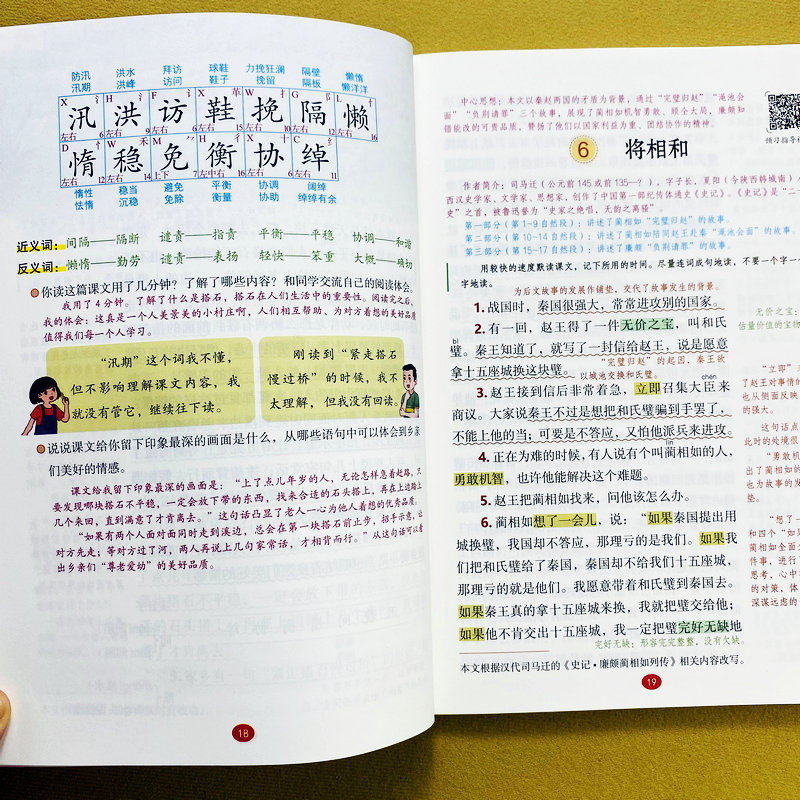 防汛 洪水 拜访 球鞋 力挽狂澜 隔壁 懒惰
汛期 洪峰 访问 鞋子 挽留 隔板 懒洋洋
X H F X W G L
汛 洪 访 鞋 挽 隔 懒
左右 6 左右 9 左右 6 左右 15 左右 10 左右 12 左右 16
D W M H X C
惰 稳 免 衡 协 绰
左右 12 左右 14 上下 7 左中右 16 左右 6 左右 11
惰性 稳当 避免 平衡 协调 阔绰
怯惰 沉稳 免除 衡量 协助 绰绰有余
近义词：间隔——隔断 谴责——指责 平衡——平稳 协调——和谐
反义词：懒惰——勤劳 谴责——表扬 轻快——笨重 大概——确切
你读这篇课文用了几分钟？了解了哪些内容？和同学交流自己的阅读体会。
我用了4分钟。了解了什么是搭石，搭石在人们生活中的重要性。阅读完之后，
我的体会：这真是一个人美景美的小村庄啊，人们相互帮助、为对方着想的美好品质
值得我们每一个人学习。
“汛期”这个词我不懂，
但不影响理解课文内容，我
就没有管它，继续往下读。
刚读到“紧走搭石
慢过桥”的时候，我不
太理解，但我没有回读。
说说课文给你留下印象最深的画面是什么，从哪些语句中可以体会到乡亲
们美好的情感。
课文给我留下印象最深的画面是：“上了点儿年岁的人，无论怎样急着赶路，只
要发现哪块搭石不平稳，一定会放下带的东西，找来合适的石头搭上，再在上边踏上
几个来回，直到满意了才肯离去。”这句话凸显了老人一心为他人着想的优秀品质。
“如果有两个人面对面同时走到溪边，总会在第一块搭石前止步，招手示意，让
对方先走；等对方过了河，两人再说上几句家常话，才相背而行。”从这句话可以看
出乡亲们“尊老爱幼”的美好品质。
18
中心思想：本文以秦赵两国的矛盾为背景，通过“完璧归赵”“渑池会
面”“负荆请罪”三个故事，展现了蔺相如机智勇敢、顾全大局，廉颇知
错能改的可贵品质，赞扬了他们以国家利益为重、团结协作的精神。
预习指导
6 将相和
作者简介：司马迁（公元前145或前135—？），字子长，夏阳（今陕西韩城南）
西汉史学家、文学家、思想家，创作了中国第一部纪传体通史《史记》。《史记》是“二
史”之首，被鲁迅誉为“史家之绝唱，无韵之离骚”。
第一部分（第1~9自然段）：讲述了蔺相如“完璧归赵”的故事。
第二部分（第10~14自然段）：讲述了蔺相如陪同赵王赴秦“渑池会面”的故事。
第三部分（第15~17自然段）：讲述了廉颇“负荆请罪”的故事。
用较快的速度默读课文，记下所用的时间。尽量连词成句地读，不要一个字一
字地读。
为后文故事的发展作铺垫，交代了故事发生的背景。
1. 战国时，秦国很强大，常常进攻别的国家。
2. 有一回，赵王得了一件无价之宝，叫和氏
bì
璧。秦王知道了，就写了一封信给赵王，说是愿意
“完璧归赵”的起因，秦王欲
拿十五座城换这块璧。
以城池交换和氏璧。
chén
3. 赵王接到信后非常着急，立即召集大臣来
商议。大家说秦王不过是想把和氏璧骗到手罢了，
不能上他的当；可要是不答应，又怕他派兵来进攻。
lìn
4. 正在为难的时候，有人说有个叫蔺相如的人，
勇敢机智，也许他能解决这个难题。
5. 赵王把蔺相如找来，问他该怎么办。
6. 蔺相如想了一会儿，说：“如果秦国提出用
城换璧，我国却不答应，那理亏的是我们。如果我
们把和氏璧给了秦国，秦国却不给我们十五座城，
那理亏的就是他们。我愿意带着和氏璧到秦国去。
如果秦王真的拿十五座城来换，我就把璧交给他；
如果他不肯交出十五座城，我一定把璧完好无缺地
完好无缺：形容完完整整，没有欠缺。
本文根据汉代司马迁的《史记·廉颇蔺相如列传》相关内容改写。
19
无价之宝：
估量价值的宝物
“立即”
了赵王对事情的
也从侧面反映
的强大。
这句话点
此时的处境很
“勇敢机
出了蔺相如的
也为故事的发
垫。
“想了一
和四个“如
蔺相如全面
件事，进行了
思考，心中
的对策，体
深谋远虑的